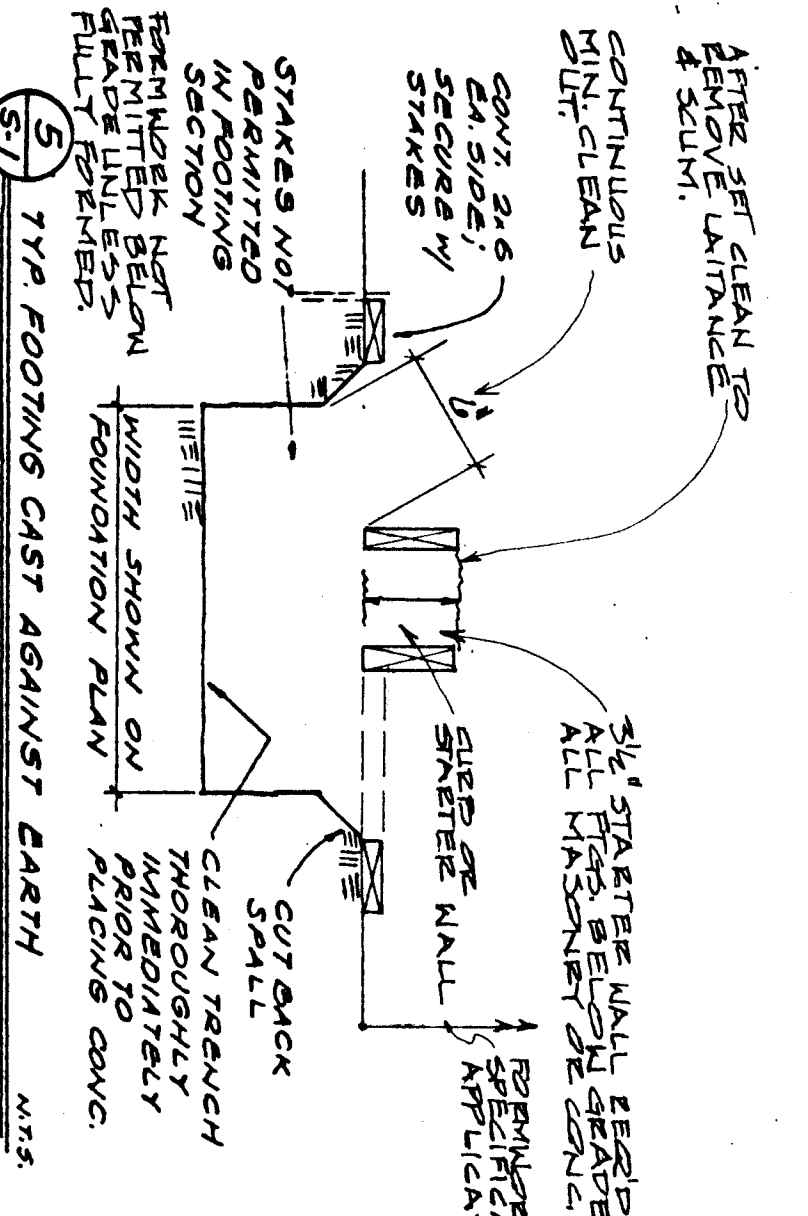 AFTER SET CLEAN TO
REMOVE LAITANCE
& SCUM.
CONTINUOUS
MIN. CLEAN
OUT.
CONT. 2x6
EA. SIDE;
SECURE W/
STAKES
STAKES NOT
PERMITTED
IN FOOTING
SECTION
FORMWORK NOT
PERMITTED BELOW
GRADE UNLESS
FULLY FORMED.
6"
3½" STARTER WALL REQ'D
ALL FTGS. BELOW GRADE
ALL MASONRY OR CONC.
CURB OR
STARTER WALL
CUT BACK
SPALL
CLEAN TRENCH
THOROUGHLY
IMMEDIATELY
PRIOR TO
PLACING CONC.
WIDTH SHOWN ON
FOUNDATION PLAN
5
S-1
TYP. FOOTING CAST AGAINST EARTH
N.T.S.